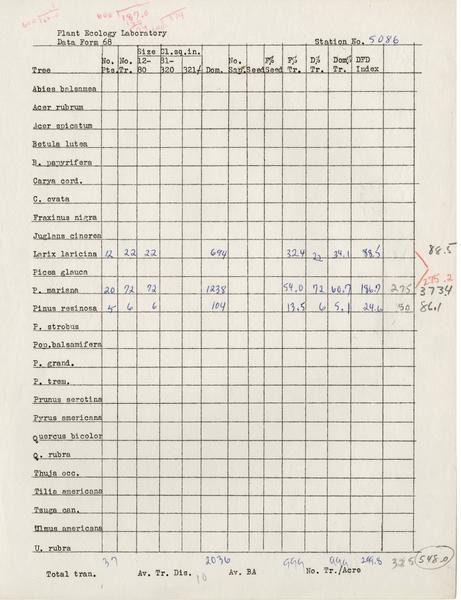 Plant Ecology Laboratory
Data Form 68
Station No. 5086
Size Cl.sq.in.
No. No. 12- 81- No. F% F% D% Dom% DFD
Tree Pts. Tr. 80 320 321/ Dom. Sap. Seed Seed Tr. Tr. Tr. Index
Abies balsamea
Acer rubrum
Acer spicatum
Betula lutea
B. papyrifera
Carya cord.
C. ovata
Fraxinus nigra
Juglans cinerea
Larix laricina 12 22 22 694 32.4 22 34.1 88.5 88.5
Picea glauca
275.2
P. mariana 20 72 72 1238 54.0 72 60.7 186.7 275 373.4
Pinus resinosa 5 6 6 104 13.5 6 5.1 24.6 50 86.1
P. strobus
Pop. balsamifera
P. grand.
P. trem.
Prunus serotina
Pyrus americana
Quercus bicolor
Q. rubra
Thuja occ.
Tilia americana
Tsuga can.
Ulmus americana
U. rubra
37 2036 99.9 99.9 299.8 325 548.0
Total tran. Av. Tr. Dis. 10 Av. BA No. Tr./Acre